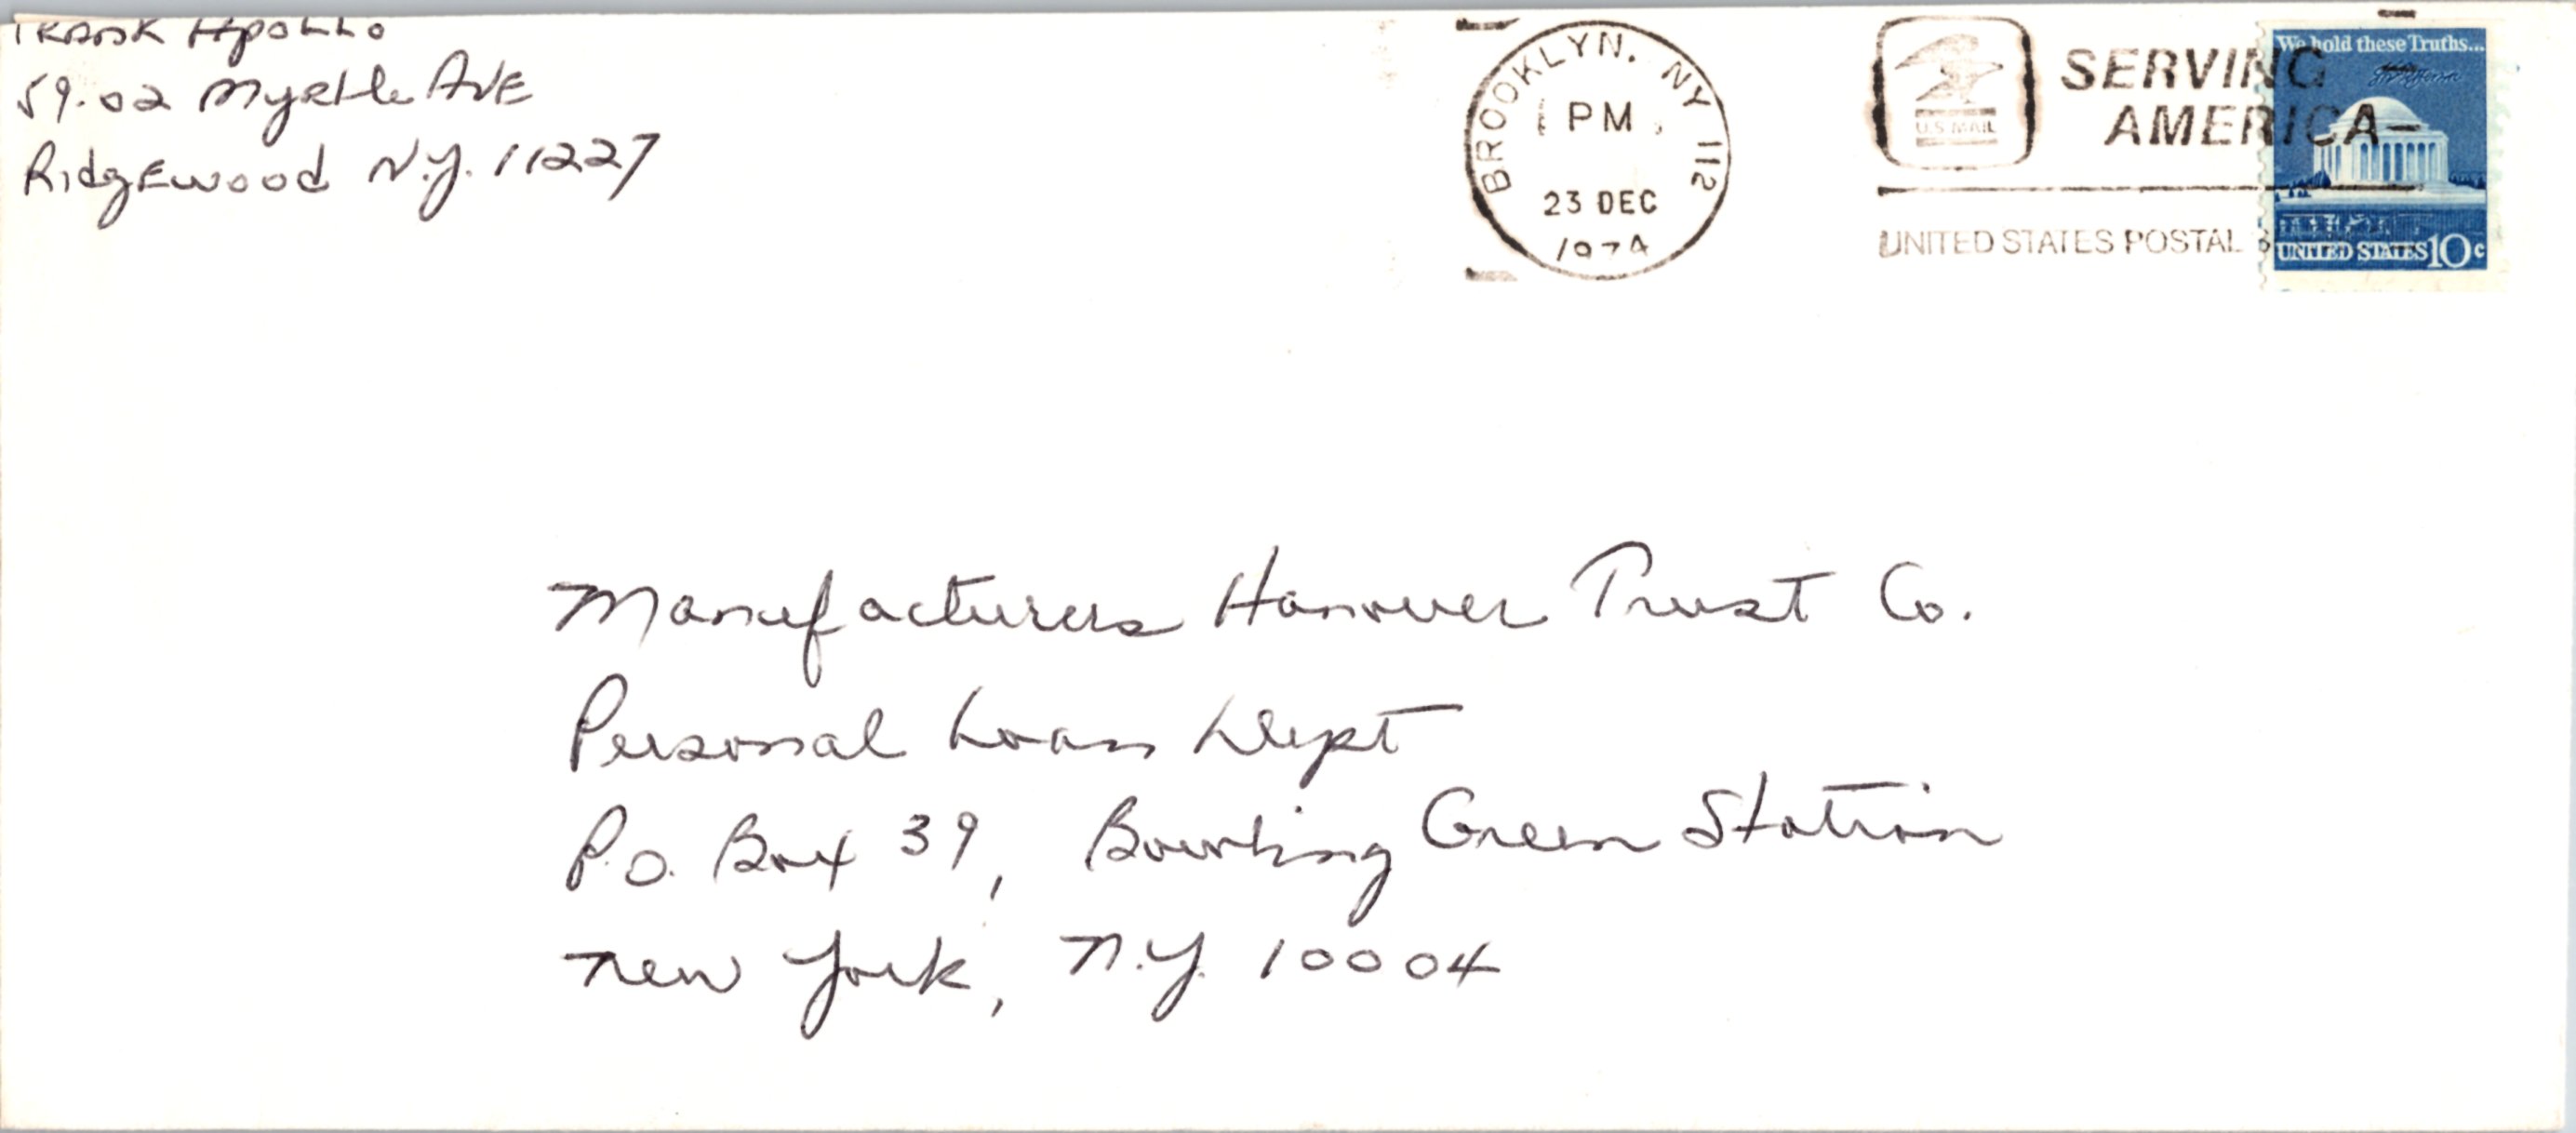 Frank Apollo
59-02 Myrtle Ave
Ridgewood N.Y. 11227
BROOKLYN, NY 112
PM
23 DEC
1974
U.S. MAIL
SERVING
AMERICA
UNITED STATES POSTAL
We hold these Truths...
UNITED STATES 10c
Manufacturers Hanover Trust Co.
Personal Loan Dept
P.O. Box 39, Bowling Green Station
New York, N.Y. 10004